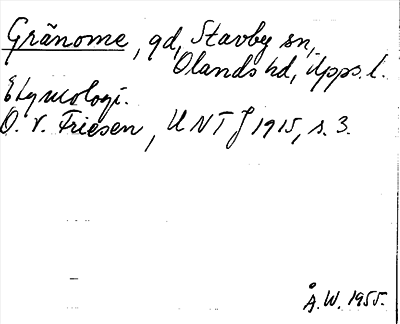 Gränome, gd, Stavby sn,
Olands hd, Upps. l.
Etymologi.
O. v. Friesen, UNT J 1915, s. 3.
Å. W. 1955.